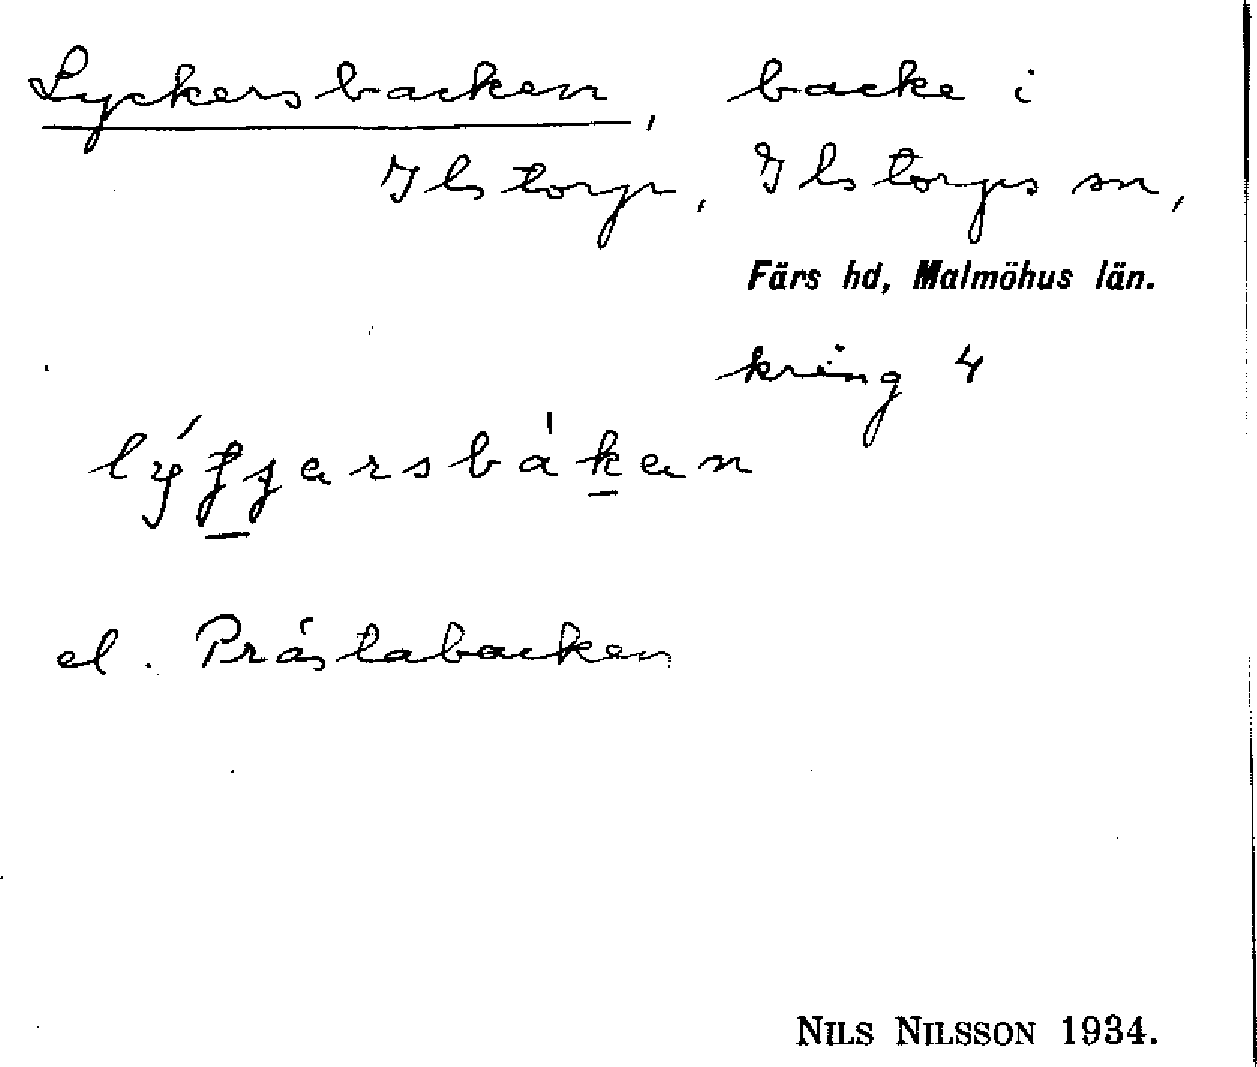 Lyckersbacken, backe i
Ilstorp, Ilstorps sn,
Färs hd, Malmöhus län.
kring 4
el. Prästabacken
NILS NILSSON 1934.